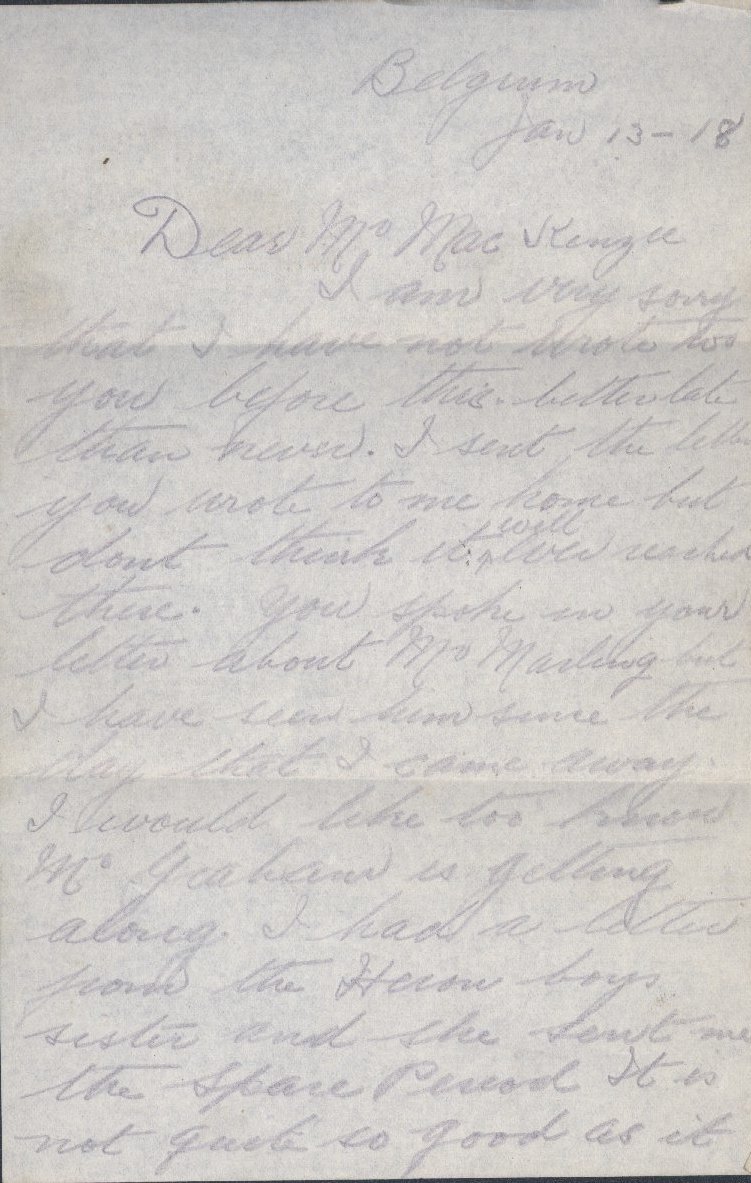 Belgium
Jan 13 - 18
Dear Mr Mac Kenzie
I am very sorry
that I have not wrote too
you before this. better late
than never. I sent the letter
you wrote to me home but
will
dont think it ever reached
there. You spoke in your
letter about Mr Marling but
I have seen him since the
day that I came away.
I would like too know
Mr Graham is getting
along. I had a letter
from the Heron boys
sister and she sent me
the Spare Period It is
not quite so good as it